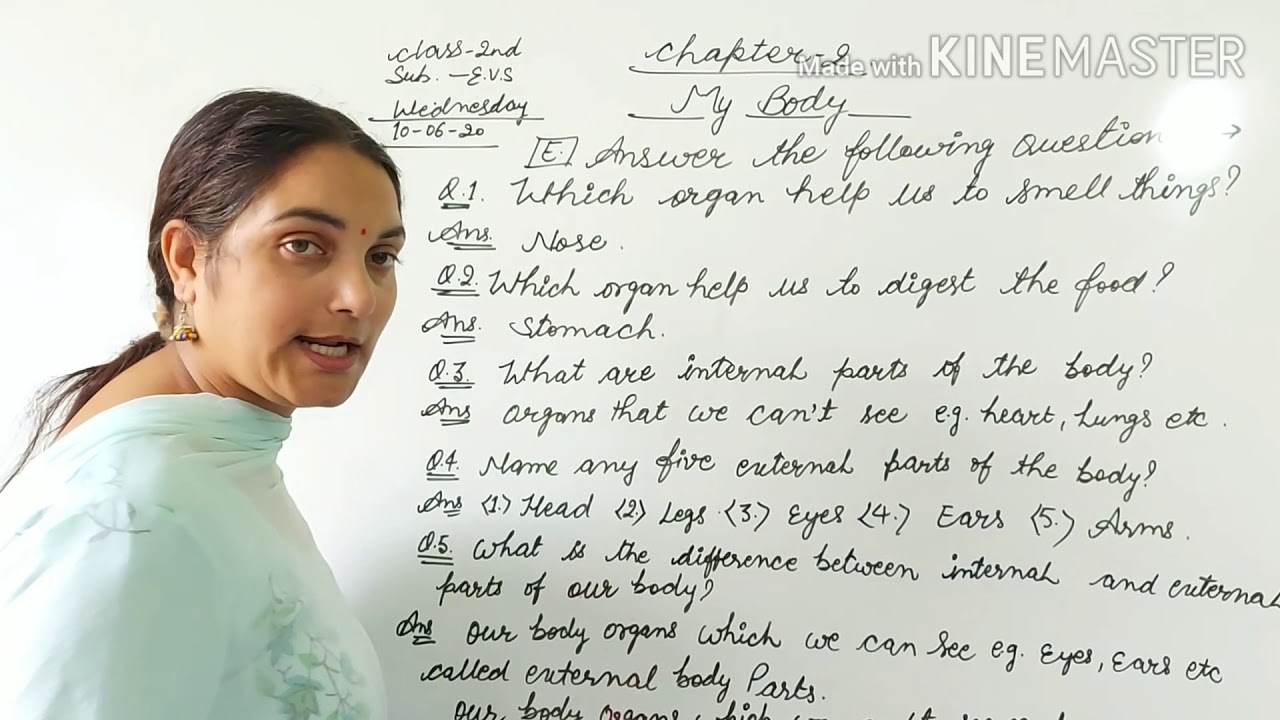 Class-2nd
Sub. - E.V.S
Wednesday
10-06-20
Chapter-2
Made with KINEMASTER
My Body
E. Answer the following Question →
Q.1. Which organ help us to smell things?
Ans. Nose.
Q.2. Which organ help us to digest the food?
Ans. Stomach.
Q.3. What are internal parts of the body?
Ans organs that we can't see e.g. heart, Lungs etc.
Q.4. Name any five external parts of the body?
Ans (1.) Head (2.) Legs (3.) Eyes (4.) Ears (5.) Arms.
Q.5. What is the difference between internal and external
parts of our body?
Ans our body organs which we can see e.g. Eyes, Ears etc
called external body Parts.
our body organs which we